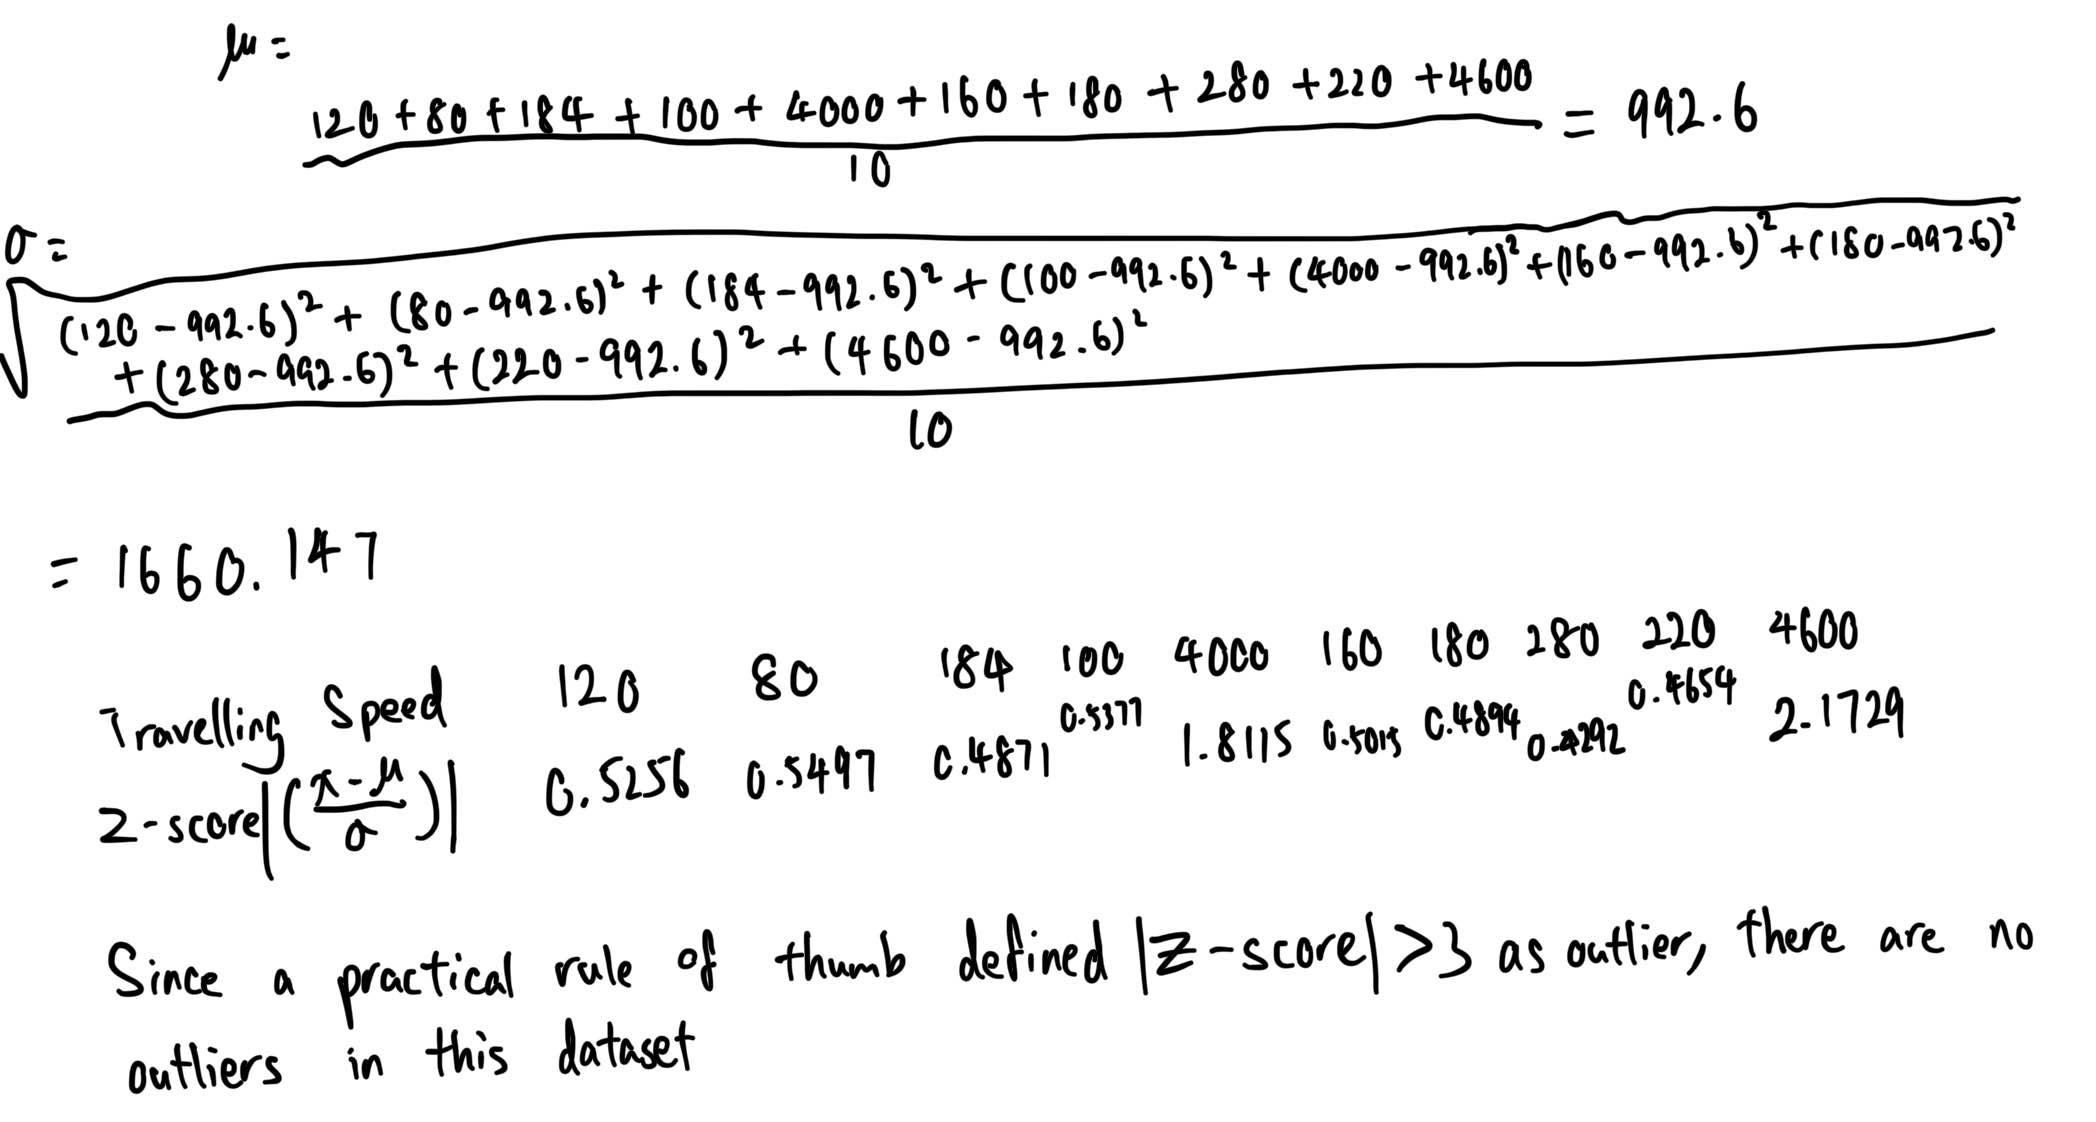 μ =
120 + 80 + 184 + 100 + 4000 + 160 + 180 + 280 + 220 + 4600 = 992.6
10
σ =
√ (120 - 992.6)² + (80 - 992.6)² + (184 - 992.6)² + (100 - 992.6)² + (4000 - 992.6)² + (160 - 992.6)² + (180 - 992.6)²
+ (280 - 992.6)² + (220 - 992.6)² + (4600 - 992.6)²
10
= 1660.147
Travelling Speed 120 80 184 100 4000 160 180 280 220 4600
z-score |(x - μ / σ)| 0.5256 0.5497 0.4871 0.5377 1.8115 0.5015 0.4894 0.4292 0.4654 2.1729
Since a practical rule of thumb defined |z-score| > 3 as outlier, there are no
outliers in this dataset